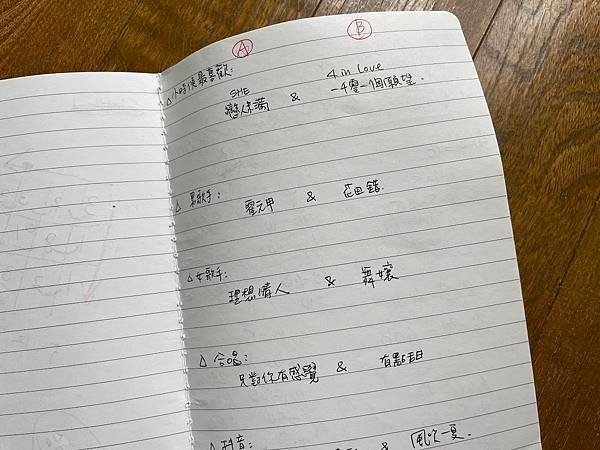 Ⓐ Ⓑ
△ 小時候最喜歡:
SHE 4 in Love
戀人未滿 & 一千零一個願望.
△ 男歌手:
霍元甲 & 花田錯.
△ 女歌手:
理想情人 & 舞孃
△ 合唱:
只對你有感覺 & 有點甜
△ 抖音:
& 風吹一夏.